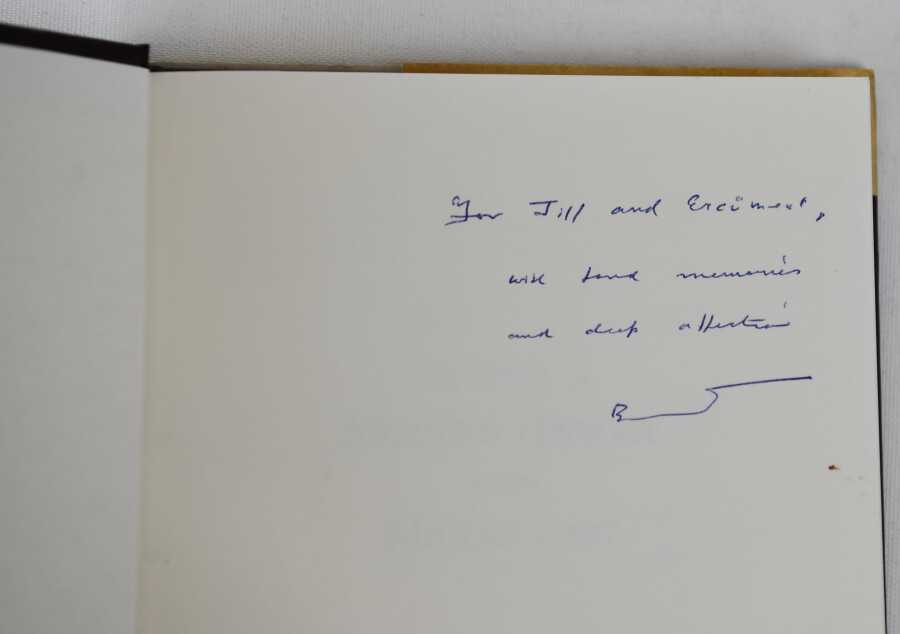 For Jill and Ercüment,
with fond memories
and deep affection